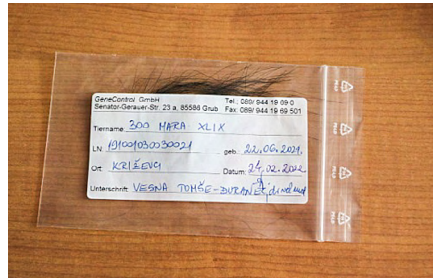 GeneControl GmbH Tel.: 089/ 944 19 69 0
Senator-Gerauer-Str. 23 a, 85586 Grub Fax: 089/ 944 19 69 501
Tiername: 300 MARA XLIX
LN: 191001030030021 geb.: 22.06.2021.
Ort: KRIŽEVCI Datum: 24.02.2022
Unterschrift: VESNA TOMŠE-ĐURANEC,